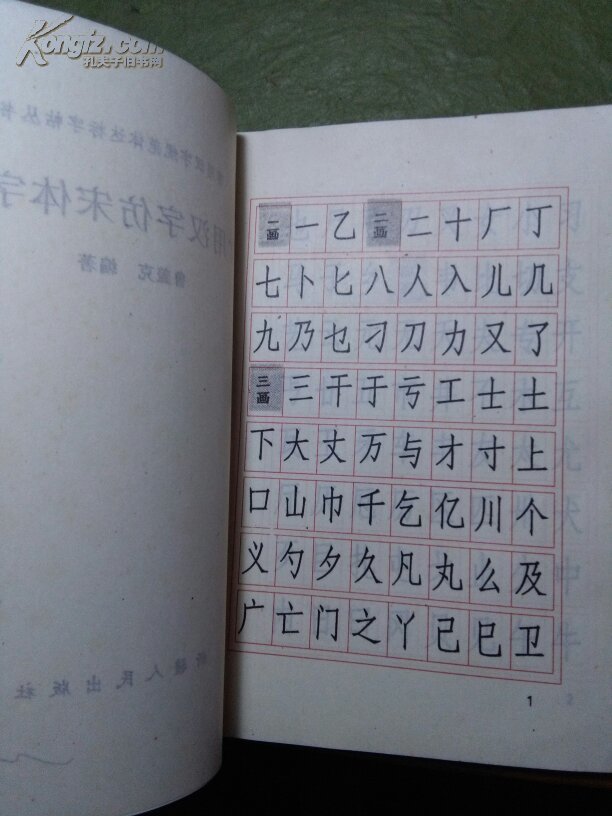 Kongfz.com
孔夫子旧书网
用汉字仿宋体字
曾盖克 编著
新疆人民出版社
一画 一 乙 二画 二 十 厂 丁
七 卜 匕 八 人 入 儿 几
九 乃 乜 刁 刀 力 又 了
三画 三 干 于 亏 工 士 土
下 大 丈 万 与 才 寸 上
口 山 巾 千 乞 亿 川 个
义 勺 夕 久 凡 丸 么 及
广 亡 门 之 丫 己 巳 卫
1